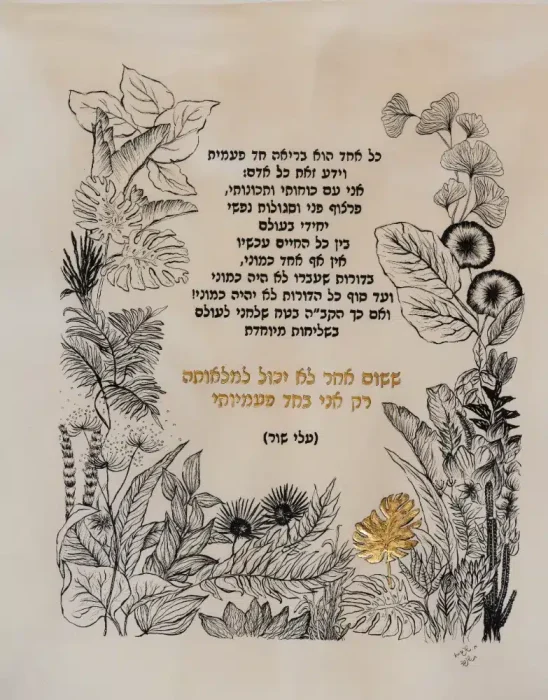 כל אחד הוא בריאה חד פעמית
וידע זאת כל אדם:
אני עם כוחותי ותכונותי,
פרצוף פני וסגולות נפשי
יחידי בעולם
בין כל החיים עכשיו
אין אף אחד כמוני,
בדורות שעברו לא היה כמוני
ועד סוף כל הדורות לא יהיה כמוני!
ואם כך הקב"ה בטח שלחני לעולם
בשליחות מיוחדת
ששום אחר לא יכול למלאותה
רק אני בחד פעמיותי
(עלי שור)